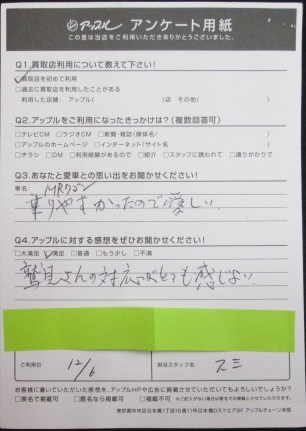 アップル アンケート用紙
この度は当店をご利用いただきありがとうございました。
Q1.買取店利用について教えて下さい!
☑買取店を初めて利用
□過去に買取店を利用したことがある
利用した店舗: アップル( )店 その他( )
Q2.アップルをご利用になったきっかけは?(複数回答可)
□テレビCM □ラジオCM □新聞・雑誌(媒体名/ )
□アップルのホームページ □インターネット(サイト名 )
□チラシ □DM □利用経験があるので □紹介 □スタッフに誘われて □通りがかりで
Q3.あなたと愛車との思い出をお聞かせください!
車名: MRワゴン
乗りやすかったので寂しい。
Q4.アップルに対する感想をぜひお聞かせください!
□大満足 ☑満足 □普通 □もう少し □不満
鷲見さんの対応がとても感じよい
ご利用日: 12/6 担当スタッフ名 スミ
お客様に書いていただいた感想を、アップルHPや広告に掲載させていただいてもよろしいでしょうか?
□実名で掲載可 □匿名なら掲載可 □掲載不可
東京都中央区日本橋1丁目16番11号日本橋Dスクエア6F アップルチェーン本部